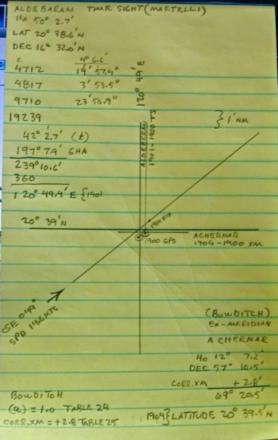 ALDEBARAN TIME SIGHT (MARTELLI)
Ho 50° 2.7'
LAT 20° 38.6' N
DEC 16° 32.0' N
4712 19' 57.9"
4817 3' 53.5"
9710 23' 50.9"
19239
42° 2.7' (t)
197° 7.9' GHA
239° 10.6'
360
120° 49.4' E {1901
20° 39' N
120° 49' E
ALDEBARAN
1901-1900 TS
} 1' NM
1900 GPS
ACHERNAR
1904-1900 XM
CSE 049°
SPD 14 KTS
(BOWDITCH)
EX-MERIDIAN
ACHERNAR
Ho 12° 7.2'
DEC 57° 10.5'
CORR.XM +2.8'
69° 20.5'
1904} LATITUDE 20° 39.5' N
BOWDITCH
(a) = 1.0 TABLE 24
CORR.XM = +2.8 TABLE 25